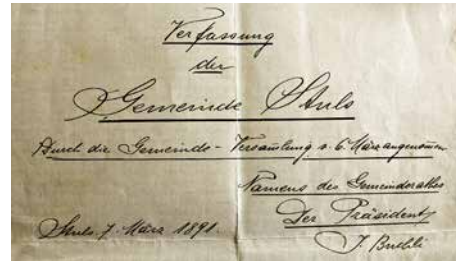 Verfassung
der
Gemeinde Stuls
Durch die Gemeinds-Versam̅lung v. 6. März angenom̅en
Namens des Gemeinderathes
Der Präsident
Stuls 7. März 1891.
J. Buchli